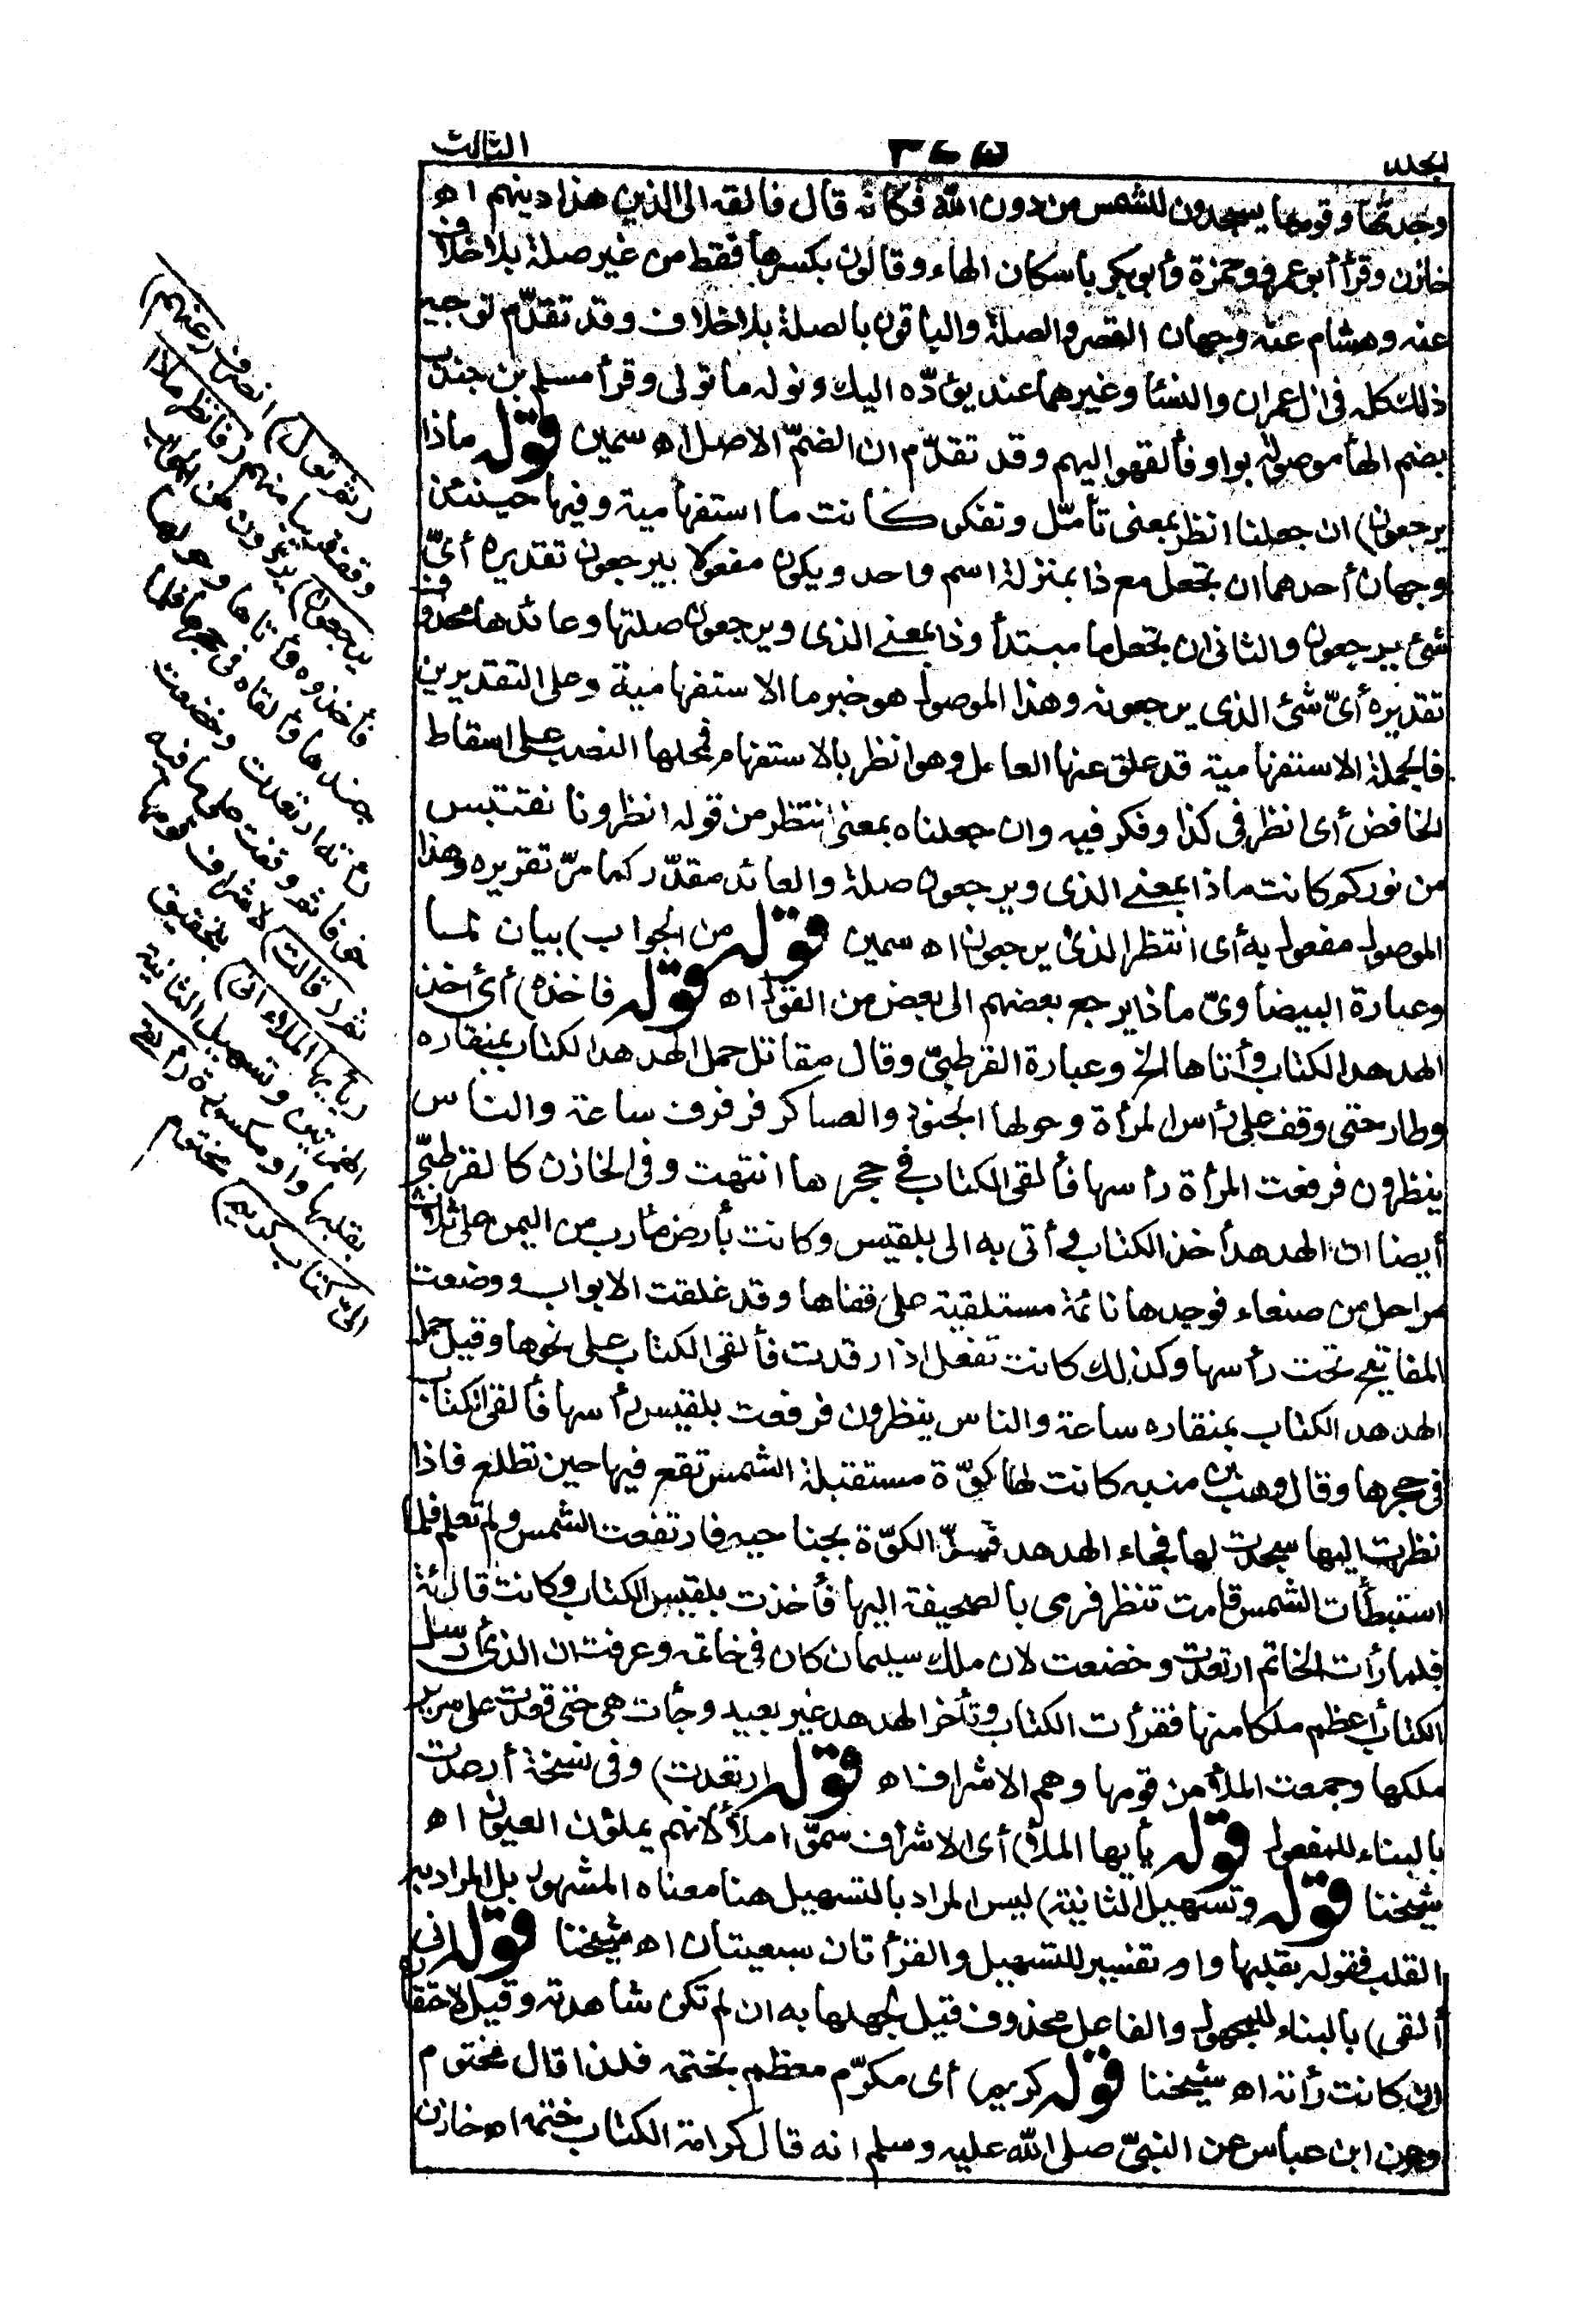 المجلد
٣٤٥
الثالث
وجدتها وقومها يسجدون للشمس من دون الله فكأنه قال فالقه الى الذين هذا دينهم اھ
خازن وقرأ أبو عمرو وحمزة وأبو بكر باسكان الهاء وقالون بكسرها فقط من غير صلة بلا خلاف
عنه وهشام عنه وجهان القصر والصلة والباقون بالصلة بلا خلاف وقد تقدّم توجيه
ذلك كله فى اٰل عمران والنسا وغيرهما عند يؤدّه اليك ونوله ما تولى وقرأ مسلم بن جندب
بضم الهأ موصولة بواو فألقهو اليهم وقد تقدّم ان الضمّ الاصل اھ سمين قوله ماذا
يرجعون) ان جعلنا انظر بمعنى تأمّل وتفكر كانت ما استفهامية وفيها حينئذ
وجهان أحدهما ان تجعل مع ذا بمنزلة اسم واحد ويكون مفعولا بيرجعون تقديره أىّ
شئ يرجعون والثانى ان تجعل ما مبتدأ وذا بمعنے الذى ويرجعون صلتها وعائدها محذوف
تقديره أىّ شئ الذى يرجعونه وهذا الموصول هو خبر ما الاستفهامية وعلى التقديرين
فالجملة الاستفهامية قد علق عنها العامل وهو انظر بالاستفهام فمحلها النصب على اسقاط
الخافض أى انظر فى كذا وفكر فيه وان جعلناه بمعنى انتظر من قوله انظرونا نقتبس
من نوركم كانت ماذا بمعنے الذى ويرجعون صلة والعائد مقدّر كما مرّ تقريره وهذا
الموصول مفعول به أى انتظر الذى يرجعون اھ سمين قوله من الجواب) بيان لما
وعبارة البيضاوىّ ماذا يرجع بعضهم الى بعض من القول اھ قوله فاخذه) أى أخذ
الهدهد الكتاب وأتاها الخ وعبارة القرطبىّ وقال مقاتل حمل الهدهد الكتاب بمنقاره
وطار حتى وقف على رأس المرأة وحولها الجنود والعساكر فرفرف ساعة والناس
ينظرون فرفعت المرأة رأسها فألقى الكتاب فى حجرها انتهت وفى الخازن كالقرطبىّ
أيضا ان الهدهد أخذ الكتاب وأتى به الى بلقيس وكانت بأرض مأرب من اليمن على ثلاث
مراحل من صنعاء فوجدها نائمة مستلقية على قفاها وقد غلقت الابواب ووضعت
المفاتيح تحت رأسها وكذلك كانت تفعل اذا رقدت فألقى الكتاب على نحرها وقيل حمل
الهدهد الكتاب بمنقاره ساعة والناس ينظرون فرفعت بلقيس رأسها فألقى الكتاب
فى حجرها وقال وهب بن منبه كانت لها كوّة مستقبلة الشمس تقع فيها حين تطلع فاذا
نظرت اليها سجدت لها فجاء الهدهد فسدّ الكوّة بجناحيه فارتفعت الشمس ولم تعلم فلما
استبطأت الشمس قامت تنظر فرمى بالصحيفة اليها فأخذت بلقيس الكتاب وكانت قارئة
فلما رأت الخاتم ارتعدت وخضعت لان ملك سليمان كان فى خاتمه وعرفت ان الذى أرسل
الكتاب أعظم ملكا منها فقرأت الكتاب وتأخر الهدهد غير بعيد وجأت هى حتى قعدت على سرير
ملكها وجمعت الملأ من قومها وهم الاشراف اھ قوله ارتعدت) وفى نسخة أرعدت
بالبناء للمفعول قوله يأيها الملأ) أى الاشراف سموّا ملأ لانهم يملؤن العيون اھ
شيخنا قوله وتسهيل الثانية) ليس المراد بالتسهيل هنا معناه المشهور بل المراد به
القلب فقوله بقلبها واو تفسير للتسهيل والقرأتان سبعيتان اھ شيخنا قوله انى
ألقى) بالبناء للمجهول والفاعل محذوف قيل لجهلها به ان لم تكن شاهدته وقيل لاحتقاره
ان كانت رأته اھ شيخنا قوله كريم) أى مكرّم معظم بختمه فلذا قال مختوم
وعن ابن عباس عن النبىّ صلى الله عليه وسلم انه قال كرامة الكتاب ختمه اھ خازن
(ثم تول) انصرف (عنهم)
وقف قريبا منهم (فانظر ماذا
يرجعون) يردون من الجواب
فأخذه وأتاها وحولها
جندها وألقاه فى حجرها فلما
رأته ارتعدت وخضعت
خوفا ثم وقفت على ما فيه
ثم (قالت) لاشراف قومها
(يأيها الملأ انى) بتحقيق
الهمزتين وتسهيل الثانية
بقلبها واوا مكسورة (ألقى
الىّ كتاب كريم) مختوم